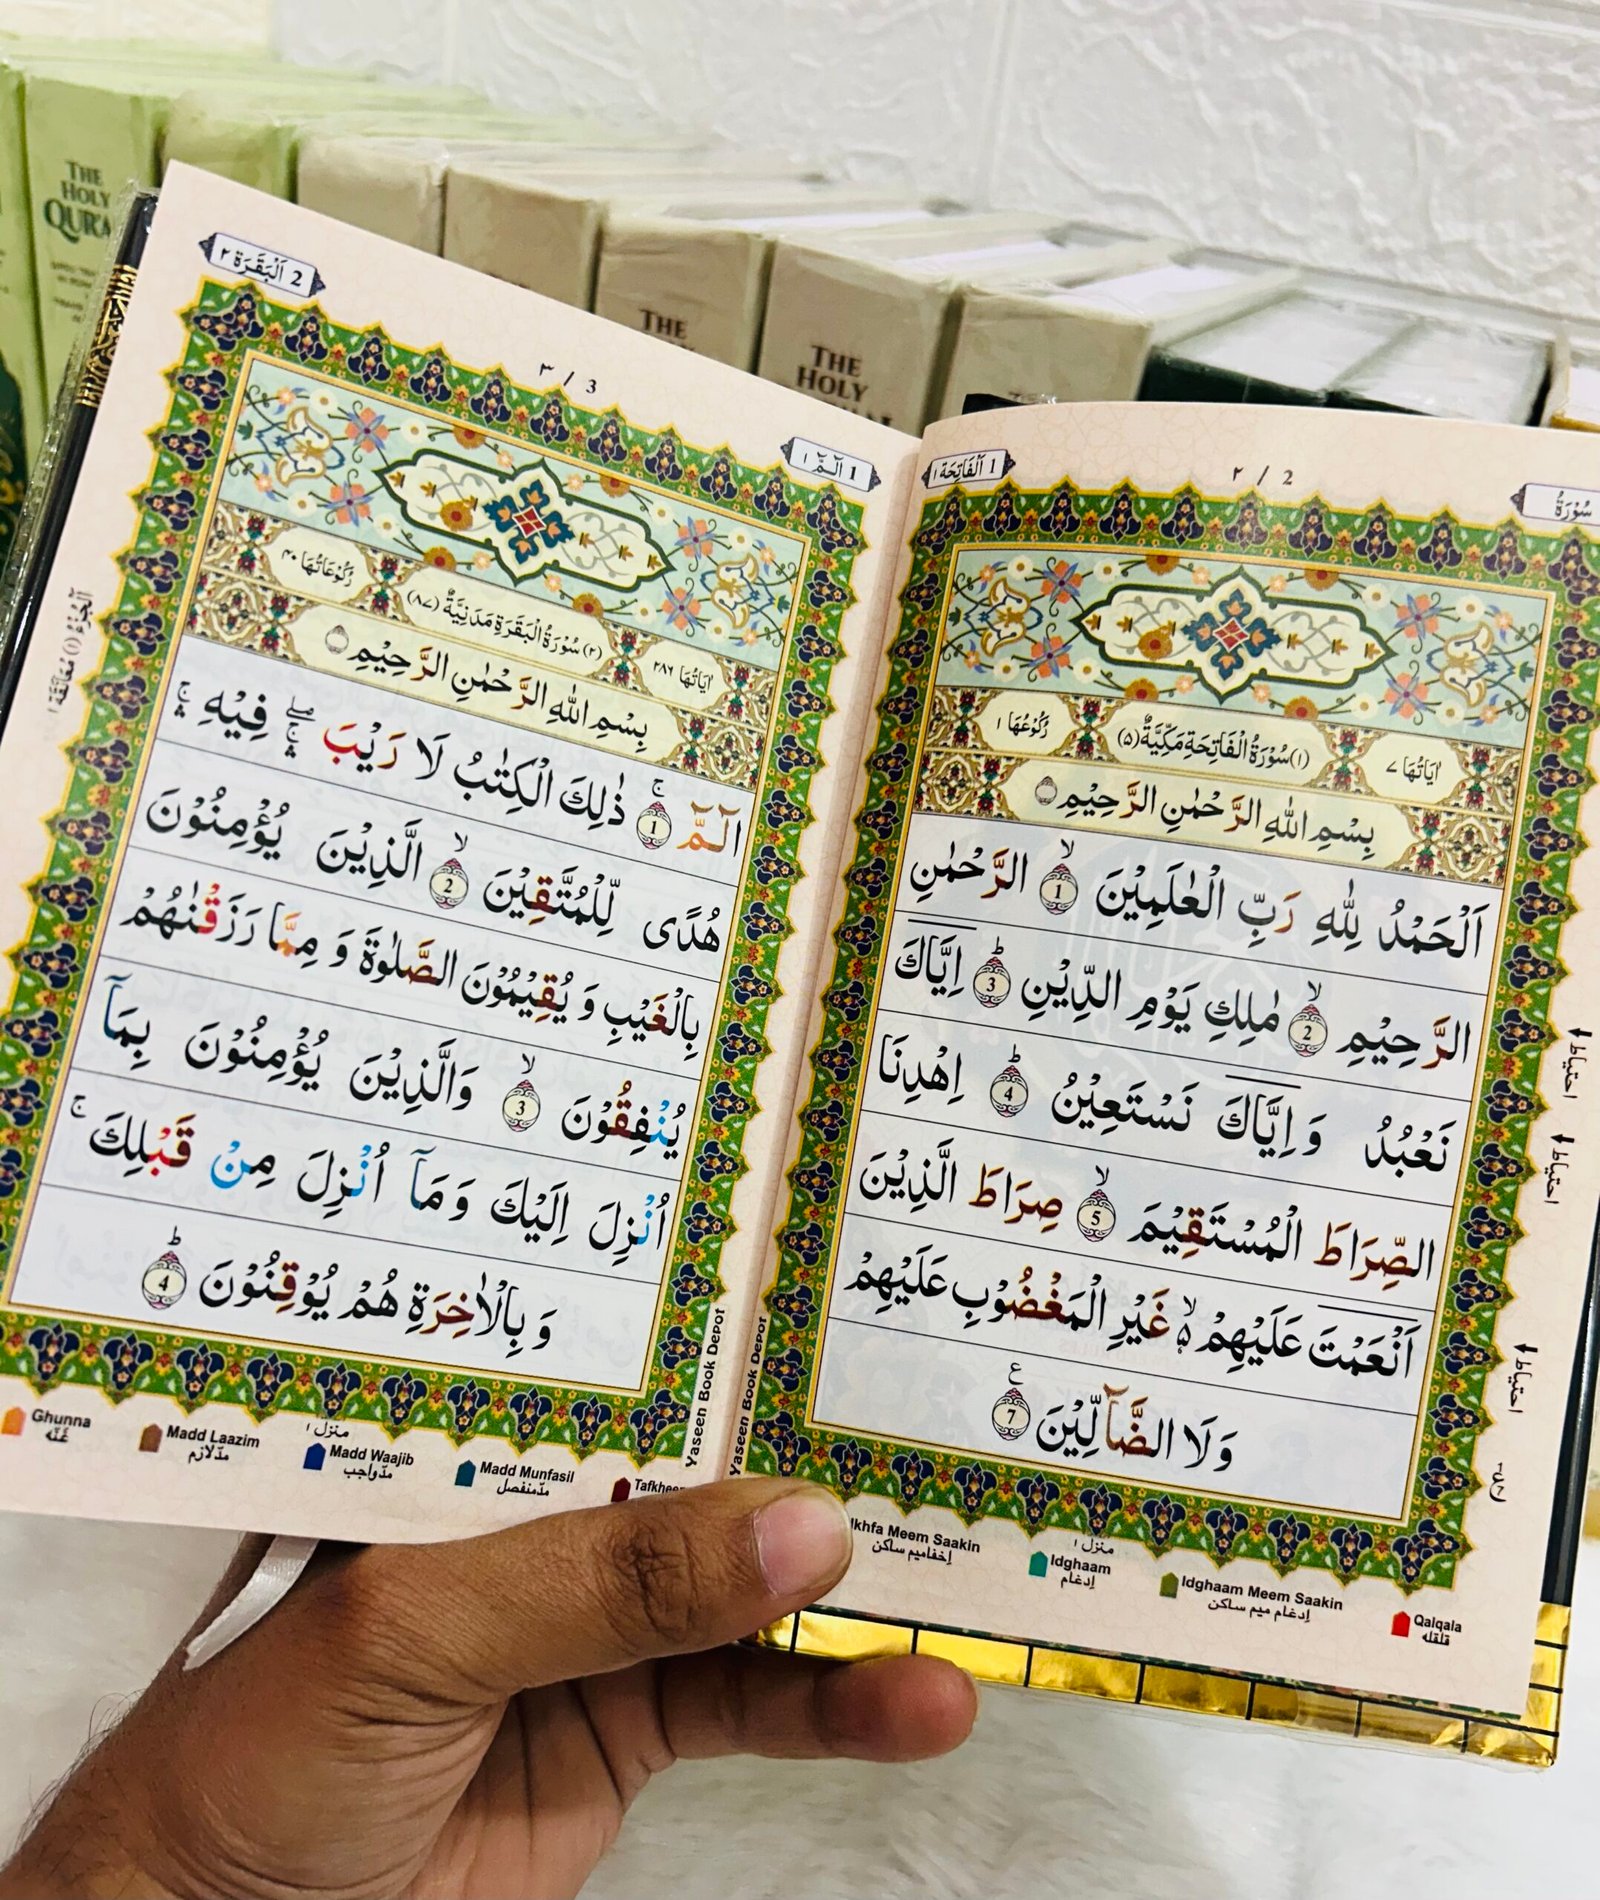 THE
HOLY
THE
THE
HOLY
سُوْرَةُ
2 / ٢
1 اَلْفَاتِحَة ١
اٰيَاتُهَا ٧
(١) سُوْرَةُ الْفَاتِحَةِ مَكِّيَّةٌ (٥)
رُكُوْعُهَا ١
بِسْمِ اللهِ الرَّحْمٰنِ الرَّحِيْمِ
اَلْحَمْدُ لِلّٰهِ رَبِّ الْعٰلَمِيْنَ 1 ۙ الرَّحْمٰنِ
الرَّحِيْمِ 2 ۙ مٰلِكِ يَوْمِ الدِّيْنِ 3 ؕ اِيَّاكَ
نَعْبُدُ وَ اِيَّاكَ نَسْتَعِيْنُ 4 ؕ اِهْدِنَا
الصِّرَاطَ الْمُسْتَقِيْمَ 5 ۙ صِرَاطَ الَّذِيْنَ
اَنْعَمْتَ عَلَيْهِمْ ۙ۬ غَيْرِ الْمَغْضُوْبِ عَلَيْهِمْ
وَلَا الضَّآلِّيْنَ 7 ع
احتیاط
احتیاط
احتیاط
منزل ١
Ikhfa Meem Saakin
إخفا ميم ساكن
Idghaam
إدغام
Idghaam Meem Saakin
إدغام ميم ساكن
Qalqala
قلقله
Yaseen Book Depot
1 الٓمّٓ ١
3 / ٣
2 اَلْبَقَرَة ٢
اٰيَاتُهَا ٢٨٦
(٢) سُوْرَةُ الْبَقَرَةِ مَدَنِيَّةٌ (٨٧)
رُكُوْعَاتُهَا ٤٠
بِسْمِ اللهِ الرَّحْمٰنِ الرَّحِيْمِ
الٓمّٓ 1 ۚ ذٰلِكَ الْكِتٰبُ لَا رَيْبَ ۛۖۚ فِيْهِ ۛۚ
هُدًى لِّلْمُتَّقِيْنَ 2 ۙ الَّذِيْنَ يُؤْمِنُوْنَ
بِالْغَيْبِ وَ يُقِيْمُوْنَ الصَّلٰوةَ وَ مِمَّا رَزَقْنٰهُمْ
يُنْفِقُوْنَ 3 ۙ وَالَّذِيْنَ يُؤْمِنُوْنَ بِمَآ
اُنْزِلَ اِلَيْكَ وَ مَآ اُنْزِلَ مِنْ قَبْلِكَ ۚ
وَ بِالْاٰخِرَةِ هُمْ يُوْقِنُوْنَ 4 ؕ
اَلْجُزْءُ (١) مُعَانَقَة ١
منزل ١
Ghunna
غُنّه
Madd Laazim
مدّ لازم
Madd Waajib
مدّ واجب
Madd Munfasil
مدّ منفصل
Yaseen Book Depot